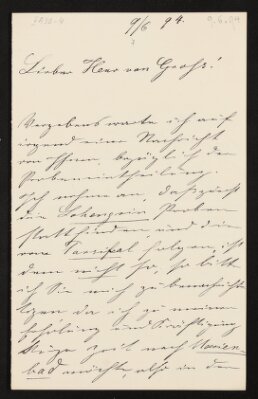 9/6 94.
9.6.94
Lieber Herr von Groß!
Vergebens warte ich auf
irgend eine Nachricht
von Ihnen, bezüglich der
Probeneintheilung.
Ich nehme an, daß zuerst
die Lohengrin Proben
stattfinden, und dann
vom Parsifal folgen, ist
dem nicht so, so bitte
ich Sie mich zu benachrichti-
gen da ich zu meiner
Erholung und Kräftigung
einige Zeit nach Marien-
bad möchte, also in der